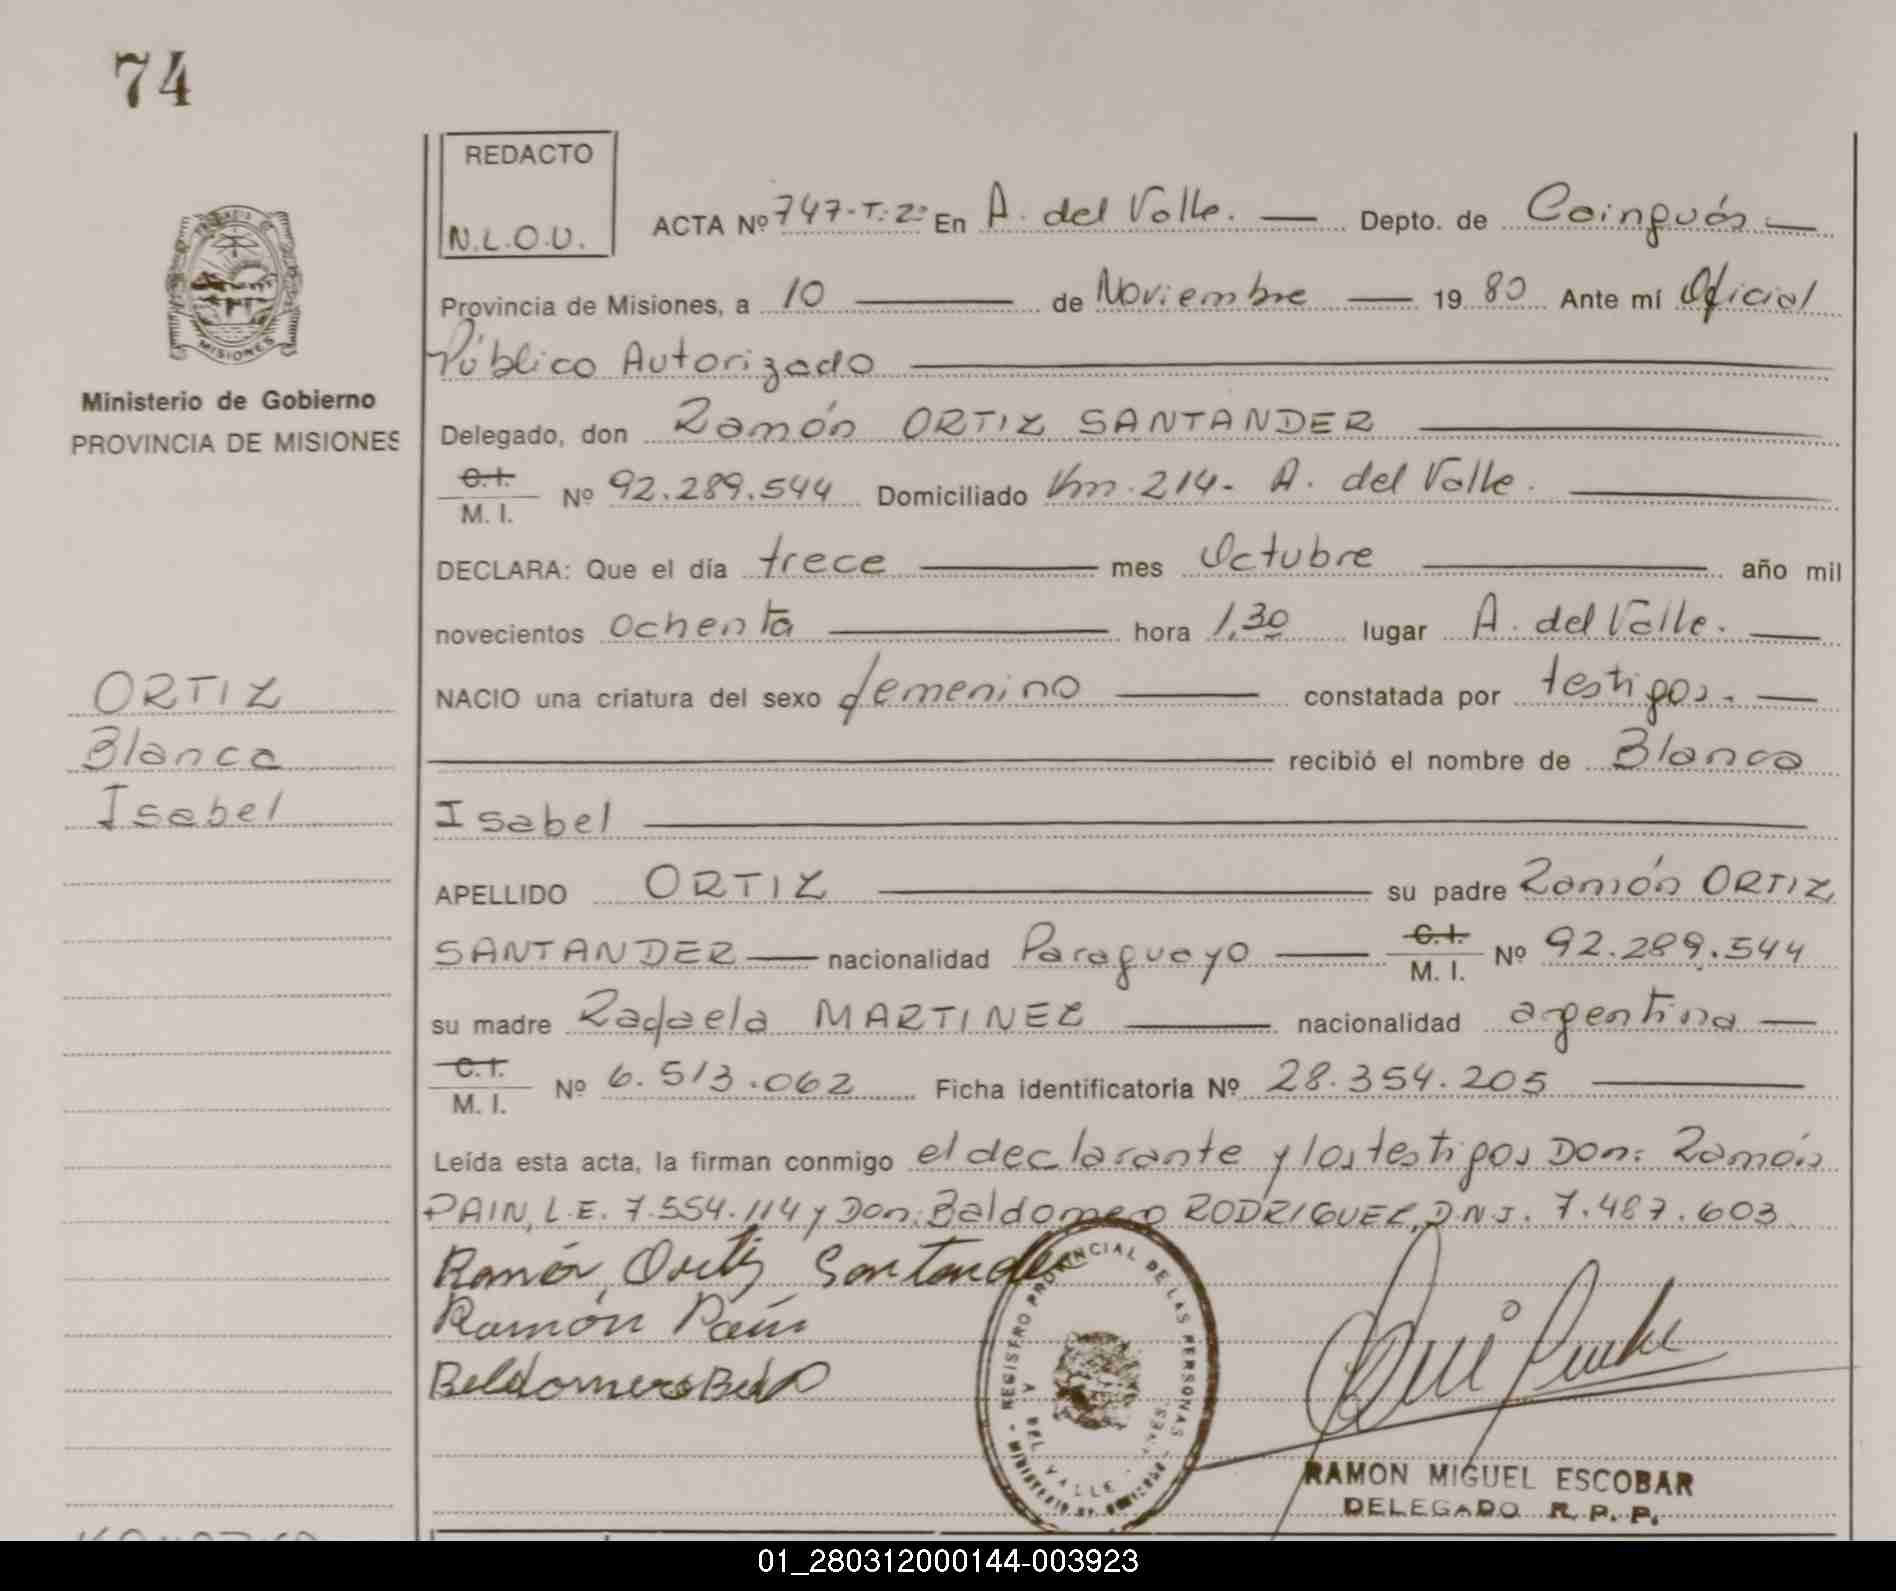 74
REDACTO
N.L.O.U.
ACTA Nº 747-T.2º En A. del Valle. Depto. de Cainguás
Provincia de Misiones, a 10 de Noviembre 1980 Ante mí Oficial
Público Autorizado
MISIONES
Ministerio de Gobierno
PROVINCIA DE MISIONES
Delegado, don Ramón ORTIZ SANTANDER
C.I.
M. I. Nº 92.289.544 Domiciliado Km. 214- A. del Valle.
DECLARA: Que el día trece mes Octubre año mil
novecientos ochenta hora 1,30 lugar A. del Valle.
ORTIZ
Blanca
Isabel
NACIO una criatura del sexo femenino constatada por testigos.
recibió el nombre de Blanca
Isabel
APELLIDO ORTIZ su padre Ramón ORTIZ
SANTANDER nacionalidad Paraguayo C.I. M. I. Nº 92.289.544
su madre Rafaela MARTINEZ nacionalidad argentina
C.I.
M. I. Nº 6.513.062 Ficha identificatoria Nº 28.354.205
Leída esta acta, la firman conmigo el declarante y los testigos Don: Ramón
PAIN, L.E. 7.554.114 y Don: Baldomero RODRIGUEZ, D.N.I. 7.487.603.
Ramón Ortiz Santander
Ramón Paín
REGISTRO PROVINCIAL DE LAS PERSONAS
DEL VALLE
RAMON MIGUEL ESCOBAR
DELEGADO R. P. P.
01_280312000144-003923